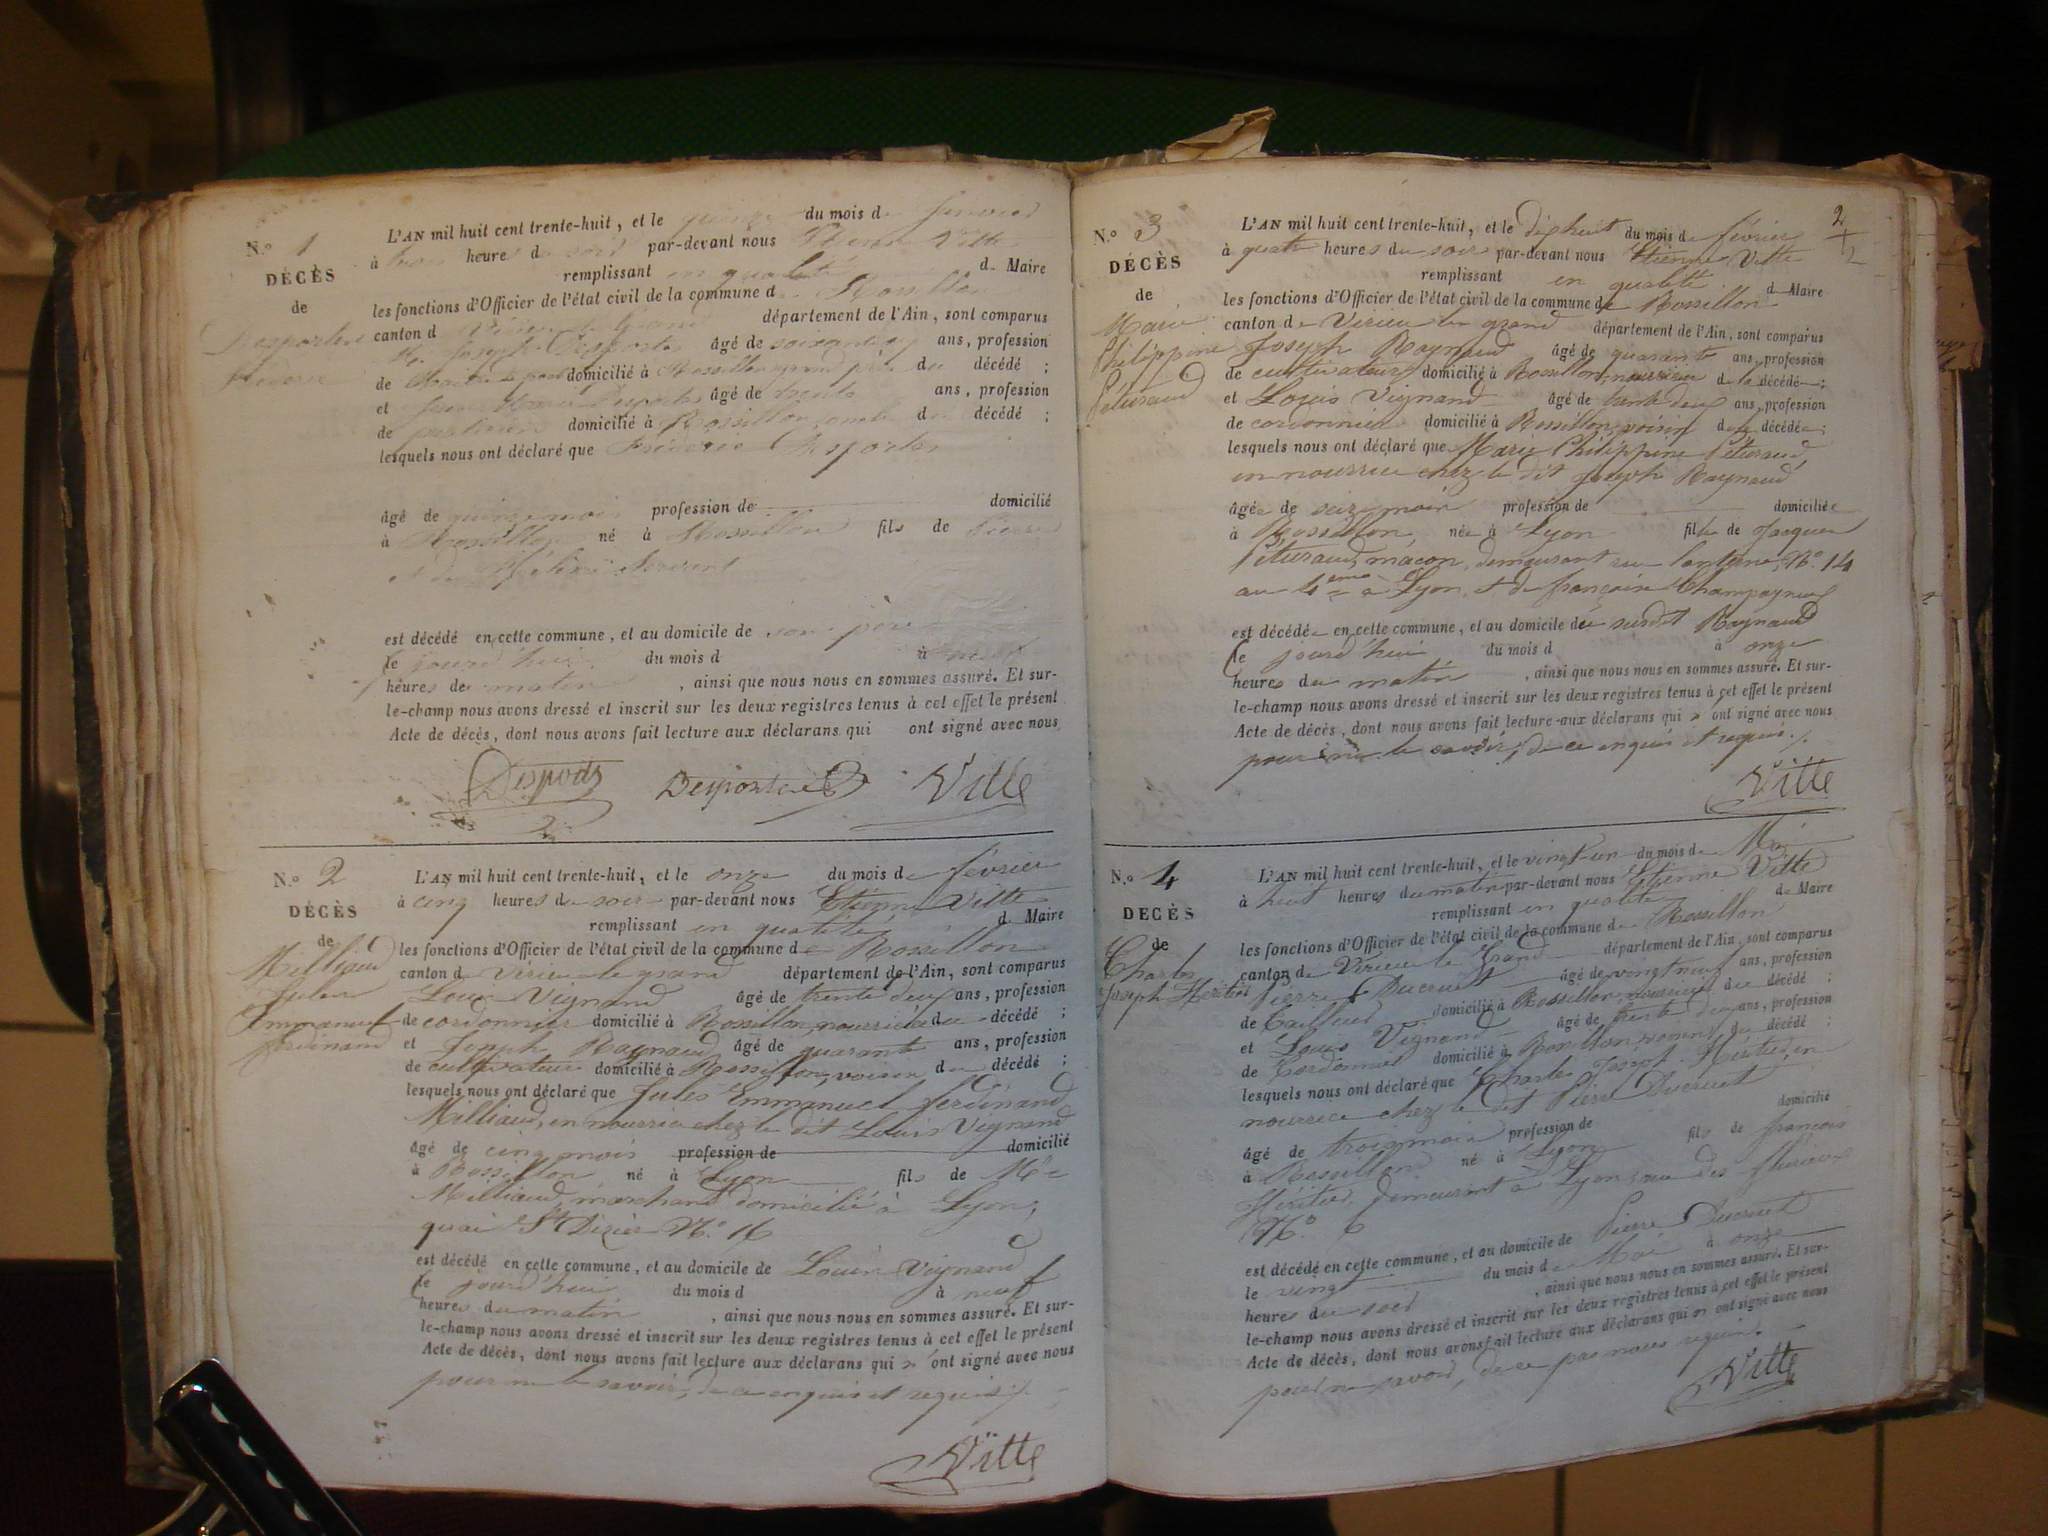 N.o 1
DÉCÈS
de
Desportes
Frédéric
L'AN mil huit cent trente-huit, et le quinze du mois de Janvier
à trois heures du soir par-devant nous Etienne Vitte
remplissant en qualité de Maire
les fonctions d'Officier de l'état civil de la commune d Rossillon
canton d Virieu le Grand département de l'Ain, sont comparus
Joseph Desportes âgé de soixante ans, profession
de domicilié à Rossillon grand père du décédé ;
et Desportes âgé de trente ans, profession
de domicilié à Rossillon, oncle du décédé ;
lesquels nous ont déclaré que Frédéric Desportes
âgé de quinze mois profession de domicilié
à Rossillon né à Rossillon fils de Pierre
et de
est décédé en cette commune, et au domicile de son père
le jourd'hui du mois d à
heures de matin , ainsi que nous nous en sommes assuré. Et sur-
le-champ nous avons dressé et inscrit sur les deux registres tenus à cet effet le présent
Acte de décès, dont nous avons fait lecture aux déclarans qui ont signé avec nous
Desportes Desportes Vitte
N.o 2
DÉCÈS
de
Milliaud
Jules
Emmanuel
ferdinand
L'AN mil huit cent trente-huit, et le onze du mois de février
à cinq heures du soir par-devant nous Etienne Vitte
remplissant en qualité de Maire
les fonctions d'Officier de l'état civil de la commune de Rossillon
canton de Virieu le grand département de l'Ain, sont comparus
Louis Vignand âgé de trente deux ans, profession
de cordonnier domicilié à Rossillon, nourricier du décédé ;
et Joseph Raynaud âgé de quarante ans, profession
de cultivateur domicilié à Rossillon, voisin du décédé ;
lesquels nous ont déclaré que Jules Emmanuel ferdinand
Milliaud, en nourrice chez le dit Louis Vignand
âgé de cinq mois profession de domicilié
à Rossillon né à Lyon fils de Mr
Milliaud, marchand domicilié à Lyon,
quai St N.o 16
est décédé en cette commune, et au domicile de Louis Vignand
le jourd'hui du mois d à neuf
heures du matin , ainsi que nous nous en sommes assuré. Et sur-
le-champ nous avons dressé et inscrit sur les deux registres tenus à cet effet le présent
Acte de décès, dont nous avons fait lecture aux déclarans qui n'ont signé avec nous
pour ne le savoir, de ce enquis et requis ./.
Vitte
2
2
N.o 3
DÉCÈS
de
Marie
Philippine
Péturaud
L'AN mil huit cent trente-huit, et le dix huit du mois de février
à quatre heures du soir par-devant nous Etienne Vitte
remplissant en qualité de Maire
les fonctions d'Officier de l'état civil de la commune de Rossillon
canton de Virieu le grand département de l'Ain, sont comparus
Joseph Raynaud âgé de quarante ans, profession
de cultivateur domicilié à Rossillon, nourricier de la décédée ;
et Louis Vignand âgé de trente deux ans, profession
de cordonnier domicilié à Rossillon, voisin de la décédée ;
lesquels nous ont déclaré que Marie Philippine Péturaud,
en nourrice chez le dit Joseph Raynaud
âgée de seize mois profession de domiciliée
à Rossillon née à Lyon fille de Jacques
Péturaud, maçon, demeurant rue lanterne, N.o 14
au 4eme à Lyon, et de françoise Champagneux
est décédée en cette commune, et au domicile de susdit Raynaud
le jourd'hui du mois d à onze
heures du matin , ainsi que nous nous en sommes assuré. Et sur-
le-champ nous avons dressé et inscrit sur les deux registres tenus à cet effet le présent
Acte de décès, dont nous avons fait lecture aux déclarans qui n'ont signé avec nous
pour ne le savoir, de ce enquis et requis ./.
Vitte
N.o 4
DECÈS
de
Charles
Joseph Héritier
L'AN mil huit cent trente-huit, et le vingt-un du mois de Mai
à huit heures du matin par-devant nous Etienne Vitte
remplissant en qualité de Maire
les fonctions d'Officier de l'état civil de la commune de Rossillon
canton de Virieu le Grand département de l'Ain, sont comparus
Pierre Ducruet âgé de vingt neuf ans, profession
de Tailleur domicilié à Rossillon, nourricier du décédé ;
et Louis Vignand âgé de trente deux ans, profession
de Cordonnier domicilié à Rossillon, voisin du décédé ;
lesquels nous ont déclaré que Charles Joseph Héritier, en
nourrice chez le dit Pierre Ducruet
âgé de trois mois profession de domicilié
à Rossillon né à Lyon fils de françois
Héritier, demeurant à Lyon, rue des
N.o 6
est décédé en cette commune, et au domicile de Pierre Ducruet
le vingt du mois de Mai à onze
heures du soir , ainsi que nous nous en sommes assuré. Et sur-
le-champ nous avons dressé et inscrit sur les deux registres tenus à cet effet le présent
Acte de décès, dont nous avons fait lecture aux déclarans qui n'ont signé avec nous
pour ne savoir, de ce par nous requis.
Vitte